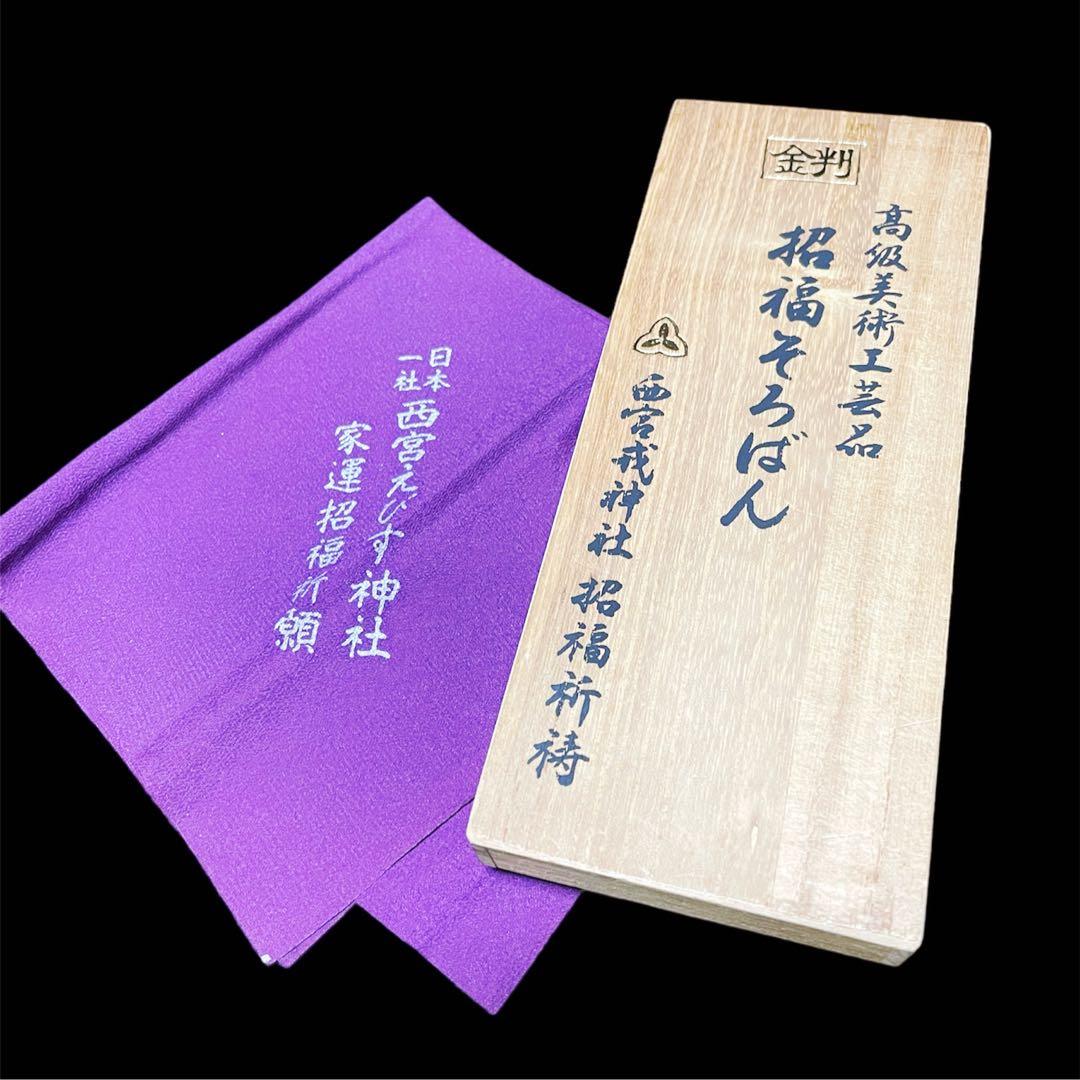 金判
高級美術工芸品
招福そろばん
西宮戎神社 招福祈祷
日本
一社
西宮えびす神社
家運招福祈願